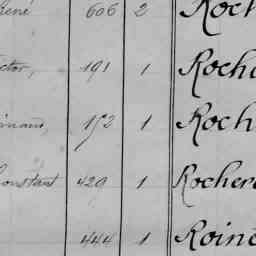 René 606 2 Roch
ctor, 191 1 Roche
152 1 Roch
Constant 429 1 Rocher
444 1 Roine